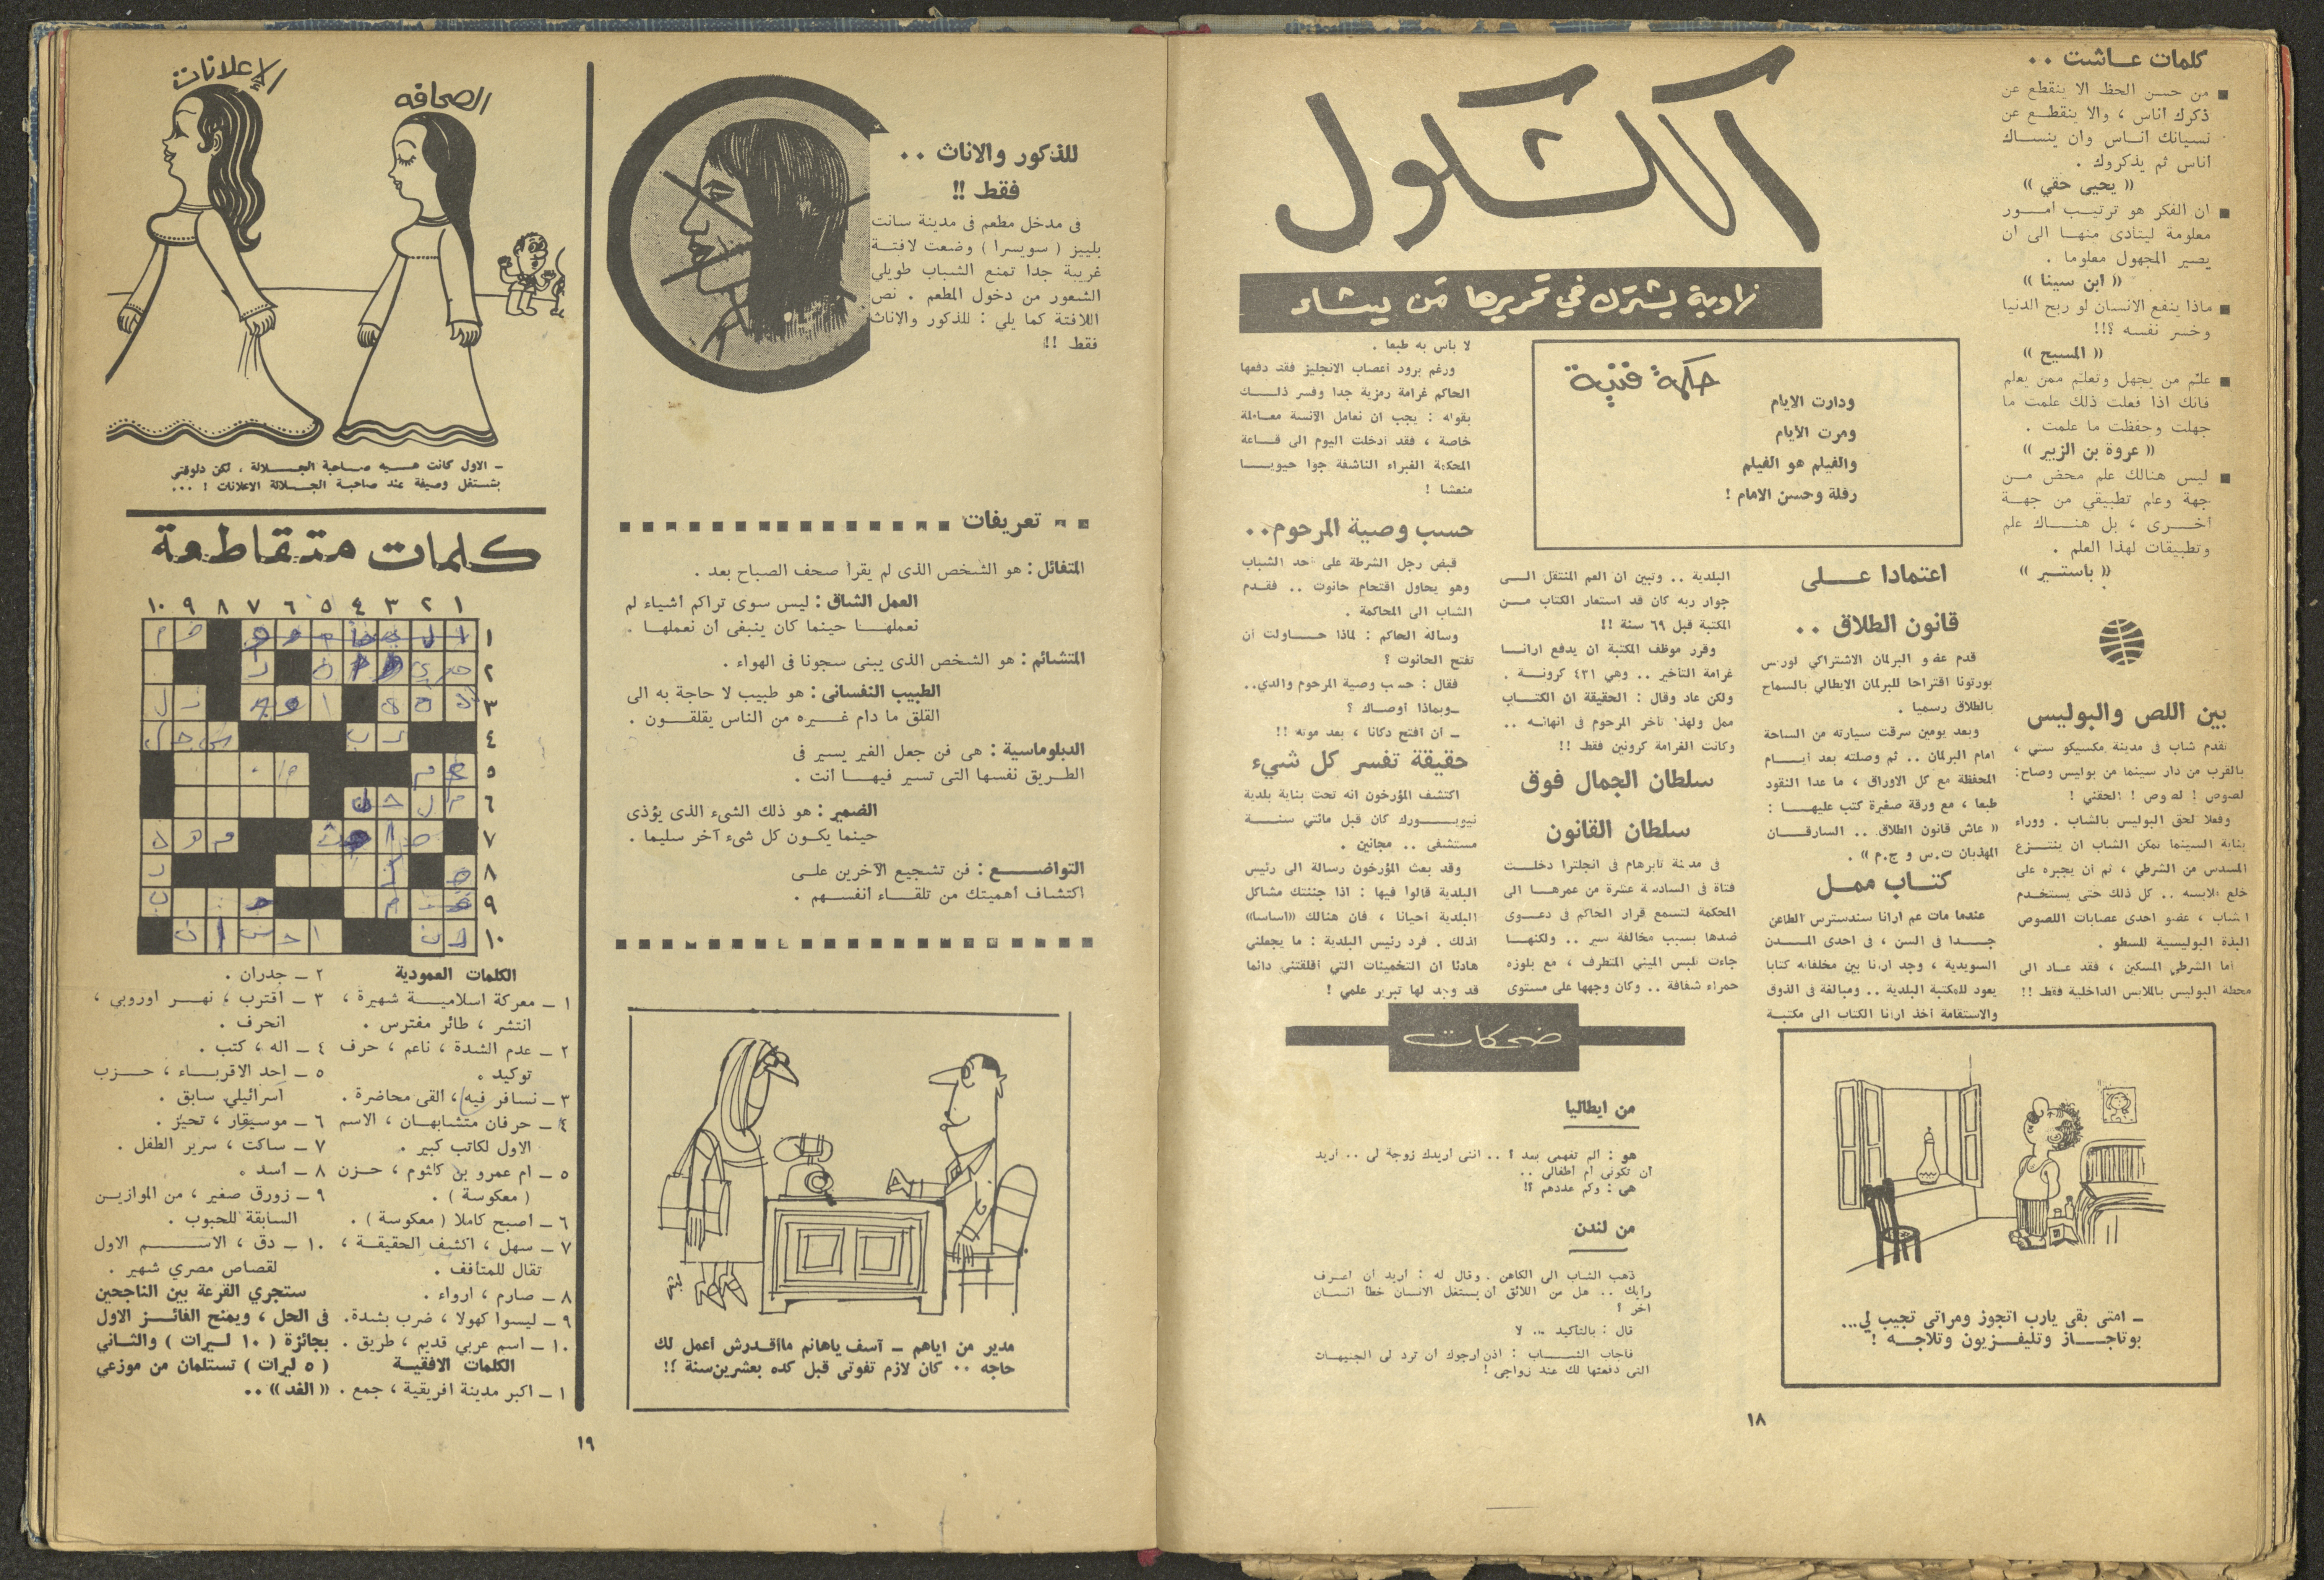 كلمات عاشت ..
من حسن الحظ الا ينقطع عن
ذكرك أناس ، والا ينقطع عن
نسيانك أناس وان ينساك
أناس ثم يذكروك .
« يحيى حقي »
ان الفكر هو ترتيب أمور
معلومة ليتأدى منها الى ان
يصير المجهول معلوما .
« ابن سينا »
ماذا ينفع الانسان لو ربح الدنيا
وخسر نفسه ؟!!
« المسيح »
علّم من يجهل وتعلّم ممن يعلم
فانك اذا فعلت ذلك علمت ما
جهلت وحفظت ما علمت .
« عروة بن الزبير »
ليس هنالك علم محض من
جهة وعلم تطبيقي من جهة
أخرى ، بل هناك علم
وتطبيقات لهذا العلم .
« باستير »
بين اللص والبوليس
تقدم شاب في مدينة مكسيكو ستي ،
بالقرب من دار سينما من بوليس وصاح:
لصوص ! لصوص ! الحقني !
وفعلا لحق البوليس بالشاب . ووراء
بناية السينما تمكن الشاب ان ينتزع
المسدس من الشرطي ، ثم ان يجبره على
خلع ملابسه .. كل ذلك حتى يستخدم
الشاب ، عضو احدى عصابات اللصوص
البذة البوليسية للسطو .
أما الشرطي المسكين ، فقد عاد الى
محطة البوليس بالملابس الداخلية فقط !!
الكشكول
زاوية يشترك في تحريرها من يشاء
حكمة فنية
ودارت الايام
ومرت الأيام
والفيلم هو الفيلم
رفلة وحسن الامام !
اعتمادا على
قانون الطلاق ..
قدم عضو البرلمان الاشتراكي لورس
بورتونا اقتراحا للبرلمان الايطالي بالسماح
بالطلاق رسميا .
وبعد يومين سرقت سيارته من الساحة
امام البرلمان .. ثم وصلته بعد أيام
المحفظة مع كل الاوراق ، ما عدا النقود
طبعا ، مع ورقة صغيرة كتب عليها :
« عاش قانون الطلاق .. السارقان
المهذبان ت.س و ج.م » .
كتاب ممل
عندما مات عم أرانا سندسترس الطاعن
جدا في السن ، في احدى المدن
السويدية ، وجد أرانا بين مخلفاته كتابا
يعود للمكتبة البلدية .. ومبالغة في الذوق
والاستقامة أخذ أرانا الكتاب الى مكتبة
البلدية .. وتبين ان العم المنتقل الى
جوار ربه كان قد استعار الكتاب من
المكتبة قبل ٦٩ سنة !!
وقرر موظف المكتبة ان يدفع أرانا
غرامة التأخير .. وهي ٤٣١ كرونة .
ولكن عاد وقال : الحقيقة ان الكتاب
ممل ولهذا تأخر المرحوم في انهائه ..
وكانت الغرامة كرونين فقط !!
سلطان الجمال فوق
سلطان القانون
في مدينة تابرهام في انجلترا دخلت
فتاة في السادسة عشرة من عمرها الى
المحكمة لتسمع قرار الحاكم في دعوى
ضدها بسبب مخالفة سير .. ولكنها
جاءت تلبس الميني المتطرف ، مع بلوزه
حمراء شفافة .. وكان وجهها على مستوى
لا بأس به طبعا .
ورغم برود أعصاب الانجليز فقد دفعها
الحاكم غرامة رمزية جدا وفسر ذلك
بقوله : يجب ان نعامل الآنسة معاملة
خاصة ، فقد أدخلت اليوم الى قاعة
المحكمة الغبراء الناشفة جوا حيويا
منعشا !
حسب وصية المرحوم..
قبض رجل الشرطة على أحد الشباب
وهو يحاول اقتحام حانوت .. فقدم
الشاب الى المحاكمة .
وسأله الحاكم : لماذا حاولت أن
تفتح الحانوت ؟
فقال : حسب وصية المرحوم والدي..
ـ وبماذا أوصاك ؟
ـ ان افتح دكانا ، بعد موته !!
حقيقة تفسر كل شيء
اكتشف المؤرخون انه تحت بناية بلدية
نيويورك كان قبل مائتي سنة
مستشفى .. مجانين .
وقد بعث المؤرخون رسالة الى رئيس
البلدية قالوا فيها : اذا جننتك مشاكل
البلدية أحيانا ، فان هنالك «اساسا»
لذلك . فرد رئيس البلدية : ما يجعلني
هادئا ان التخمينات التي أقلقتني دائما
قد وجد لها تبرير علمي !
ضحكات
من ايطاليا
هو : ألم تفهمي بعد ؟ .. انني أريدك زوجة لي .. أريد
أن تكوني أم أطفالي ..
هي : وكم عددهم ؟!
من لندن
ذهب الشاب الى الكاهن . وقال له : أريد أن أعرف
رأيك .. هل من اللائق أن يستغل الانسان خطأ انسان
آخر ؟
قال : بالتأكيد .. لا
فأجاب الشاب : اذن أرجوك أن ترد لي الجنيهات
التي دفعتها لك عند زواجي !
ـ امتى بقى يارب اتجوز ومراتي تجيب لي...
بوتاجاز وتليفزيون وتلاجه !
١٨
للذكور والاناث ..
فقط !!
في مدخل مطعم في مدينة سانت
بلييز ( سويسرا ) وضعت لافتة
غريبة جدا تمنع الشباب طويلي
الشعور من دخول المطعم . نص
اللافتة كما يلي : للذكور والاناث
فقط !!
تعريفات
المتفائل : هو الشخص الذي لم يقرأ صحف الصباح بعد .
العمل الشاق : ليس سوى تراكم أشياء لم
نعملها حينما كان ينبغي أن نعملها .
المتشائم : هو الشخص الذي يبني سجونا في الهواء .
الطبيب النفساني : هو طبيب لا حاجة به الى
القلق ما دام غيره من الناس يقلقون .
الدبلوماسية : هي فن جعل الغير يسير في
الطريق نفسها التي تسير فيها أنت .
الضمير : هو ذلك الشيء الذي يؤذي
حينما يكون كل شيء آخر سليما .
التواضع : فن تشجيع الآخرين على
اكتشاف أهميتك من تلقاء أنفسهم .
مدير من اياهم ـ آسف ياهانم ماأقدرش أعمل لك
حاجه .. كان لازم تفوتي قبل كده بعشرين سنة ؟!
الصحافه
الإعلانات
ـ الاول كانت هيه صاحبة الجلالة ، لكن دلوقتي
بتشتغل وصيفة عند صاحبة الجلالة الاعلانات ! ...
كلمات متقاطعة
١ ٢ ٣ ٤ ٥ ٦ ٧ ٨ ٩ ١٠
١
٢
٣
٤
٥
٦
٧
٨
٩
١٠
الكلمات العمودية
١ ـ معركة اسلامية شهيرة ،
انتشر ، طائر مفترس .
٢ ـ عدم الشدة ، ناعم ، حرف
توكيد .
٣ ـ نسافر فيه ، القى محاضرة .
٤ ـ حرفان متشابهان ، الاسم
الاول لكاتب كبير .
٥ ـ ام عمرو بن كلثوم ، حزن
( معكوسة ) .
٦ ـ أصبح كاملا ( معكوسة ) .
٧ ـ سهل ، اكشف الحقيقة ،
تقال للمتأفف .
٨ ـ صارم ، ارواء .
٩ ـ ليسوا كهولا ، ضرب بشدة .
١٠ ـ اسم عربي قديم ، طريق .
الكلمات الافقية
١ ـ اكبر مدينة افريقية ، جمع .
٢ ـ جدران .
٣ ـ اقترب ، نهر اوروبي ،
انحرف .
٤ ـ اله ، كتب .
٥ ـ احد الاقرباء ، حزب
اسرائيلي سابق .
٦ ـ موسيقار ، تحيز .
٧ ـ ساكت ، سرير الطفل .
٨ ـ أسد .
٩ ـ زورق صغير ، من الموازين
السابقة للحبوب .
١٠ ـ دق ، الاسم الاول
لقصاص مصري شهير .
ستجري القرعة بين الناجحين
في الحل ، ويمنح الفائز الاول
بجائزة ( ١٠ ليرات ) والثاني
( ٥ ليرات ) تستلمان من موزعي
« الغد » ..
١٩